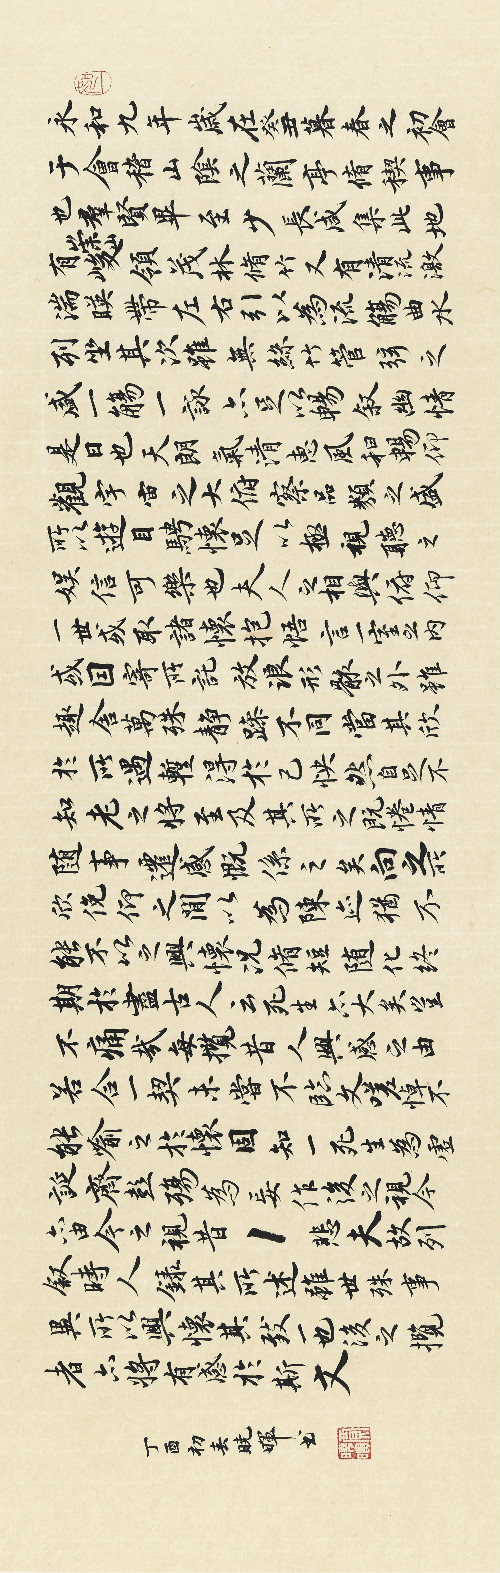 永和九年歲在癸丑暮春之初會
于會稽山陰之蘭亭脩稧事
也羣賢畢至少長咸集此地
有崇山峻領茂林脩竹又有清流激
湍暎帶左右引以為流觴曲水
列坐其次雖無絲竹管弦之
盛一觴一詠亦足以暢敘幽情
是日也天朗氣清惠風和暢仰
觀宇宙之大俯察品類之盛
所以遊目騁懷足以極視聽之
娛信可樂也夫人之相與俯仰
一世或取諸懷抱悟言一室之內
或因寄所託放浪形骸之外雖
趣舍萬殊靜躁不同當其欣
於所遇蹔得於己怏然自足不
知老之將至及其所之既惓情
隨事遷感慨係之矣向之所
欣俛仰之閒以為陳迹猶不
能不以之興懷況脩短隨化終
期於盡古人云死生亦大矣豈
不痛哉每攬昔人興感之由
若合一契未嘗不臨文嗟悼不
能喻之於懷固知一死生為虛
誕齊彭殤為妄作後之視今
亦由今之視昔 悲夫故列
敘時人錄其所述雖世殊事
異所以興懷其致一也後之攬
者亦將有感於斯文
丁酉初春晓暉书